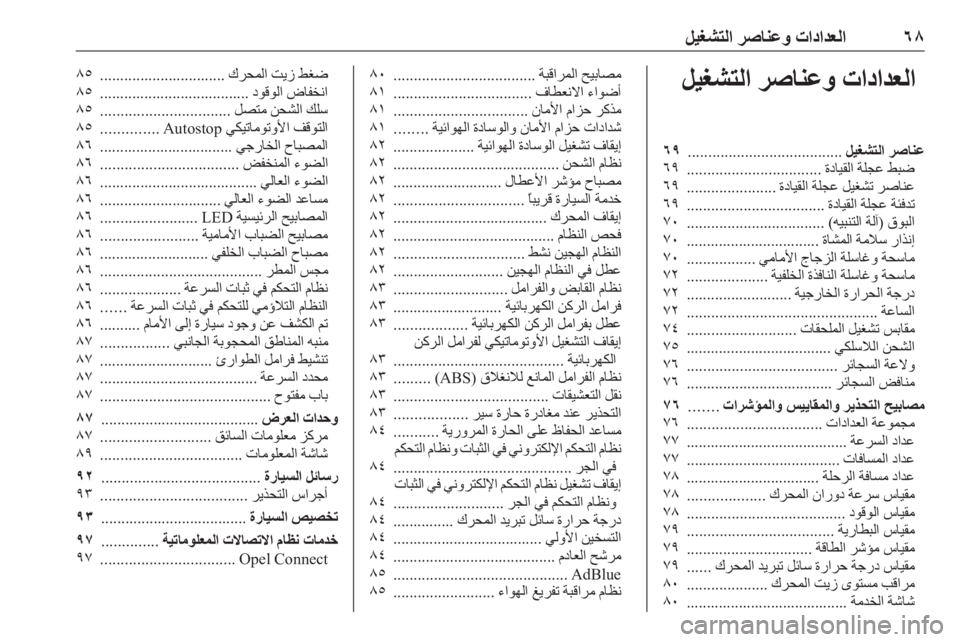 ٦٨ العدادات وعناصر التشغيل
العدادات وعناصر التشغيل
عناصر التشغيل ...................................... ٦٩
ضبط عجلة القيادة ................................. ٦٩
عناصر تشغيل عجلة القيادة ...................... ٦٩
تدفئة عجلة القيادة .................................. ٦٩
البوق (آلة التنبيه) .................................. ٧٠
إنذار سلامة المشاة ................................. ٧٠
ماسحة وغاسلة الزجاج الأمامي ................. ٧٠
ماسحة وغاسلة النافذة الخلفية .................... ٧٢
درجة الحرارة الخارجية .......................... ٧٢
الساعة ............................................... ٧٢
مقابس تشغيل الملحقات ........................... ٧٤
الشحن اللاسلكي .................................... ٧٥
ولاعة السجائر ...................................... ٧٦
منافض السجائر .................................... ٧٦
مصابيح التحذير والمقاييس والمؤشرات ....... ٧٦
مجموعة العدادات .................................. ٧٦
عداد السرعة ........................................ ٧٧
عداد المسافات ...................................... ٧٧
عداد مسافة الرحلة ................................. ٧٨
مقياس سرعة دوران المحرك .................... ٧٨
مقياس الوقود ....................................... ٧٨
مقياس البطارية ..................................... ٧٩
مقياس مؤشر الطاقة ............................... ٧٩
مقياس درجة حرارة سائل تبريد المحرك ...... ٧٩
مراقب مستوى زيت المحرك .................... ٨٠
شاشة الخدمة ........................................ ٨٠
مصابيح المراقبة ................................... ٨٠
أضواء الانعطاف .................................. ٨١
مذكر حزام الأمان ................................. ٨١
شدادات حزام الأمان والوسادة الهوائية ........ ٨١
إيقاف تشغيل الوسادة الهوائية .................... ٨٢
نظام الشحن ......................................... ٨٢
مصباح مؤشر الأعطال ........................... ٨٢
خدمة السيارة قريباً ................................. ٨٢
إيقاف المحرك ...................................... ٨٢
فحص النظام ........................................ ٨٢
النظام الهجين نشط ................................ ٨٢
عطل في النظام الهجين ........................... ٨٢
نظام القابض والفرامل ............................ ٨٣
فرامل الركن الكهربائية ........................... ٨٣
عطل بفرامل الركن الكهربائية .................. ٨٣
إيقاف التشغيل الأوتوماتيكي لفرامل الركن
الكهربائية ........................................... ٨٣
نظام الفرامل المانع للانغلاق (ABS) ......... ٨٣
نقل التعشيقات ...................................... ٨٣
التحذير عند مغادرة حارة سير .................. ٨٣
مساعد الحفاظ على الحارة المرورية ........... ٨٤
نظام التحكم الإلكتروني في الثبات ونظام التحكم
في الجر ............................................. ٨٤
إيقاف تشغيل نظام التحكم الإلكتروني في الثبات
ونظام التحكم في الجر ............................ ٨٤
درجة حرارة سائل تبريد المحرك ............... ٨٤
التسخين الأولي ..................................... ٨٤
مرشح العادم ........................................ ٨٤
AdBlue ............................................ ٨٥
نظام مراقبة تفريغ الهواء ......................... ٨٥
ضغط زيت المحرك ............................... ٨٥
انخفاض الوقود .................................... ٨٥
سلك الشحن متصل ................................ ٨٥
التوقف الأوتوماتيكي Autostop .............. ٨٥
المصباح الخارجي ................................. ٨٦
الضوء المنخفض ................................... ٨٦
الضوء العالي ....................................... ٨٦
مساعد الضوء العالي .............................. ٨٦
المصابيح الرئيسية LED ........................ ٨٦
مصابيح الضباب الأمامية ........................ ٨٦
مصباح الضباب الخلفي ........................... ٨٦
مجس المطر ........................................ ٨٦
نظام التحكم في ثبات السرعة .................... ٨٦
النظام التلاؤمي للتحكم في ثبات السرعة ...... ٨٦
تم الكشف عن وجود سيارة إلى الأمام .......... ٨٦
منبه المناطق المحجوبة الجانبي ................. ٨٧
تنشيط فرامل الطوارئ ............................ ٨٧
محدد السرعة ....................................... ٨٧
باب مفتوح .......................................... ٨٧
وحدات العرض ....................................... ٨٧
مركز معلومات السائق ........................... ٨٧
شاشة المعلومات ................................... ٨٩
رسائل السيارة ....................................... ٩٢
أجراس التحذير .................................... ٩٣
تخصيص السيارة .................................... ٩٣
خدمات نظام الاتصالات المعلوماتية .............. ٩٧
Opel Connect ................................. ٩٧